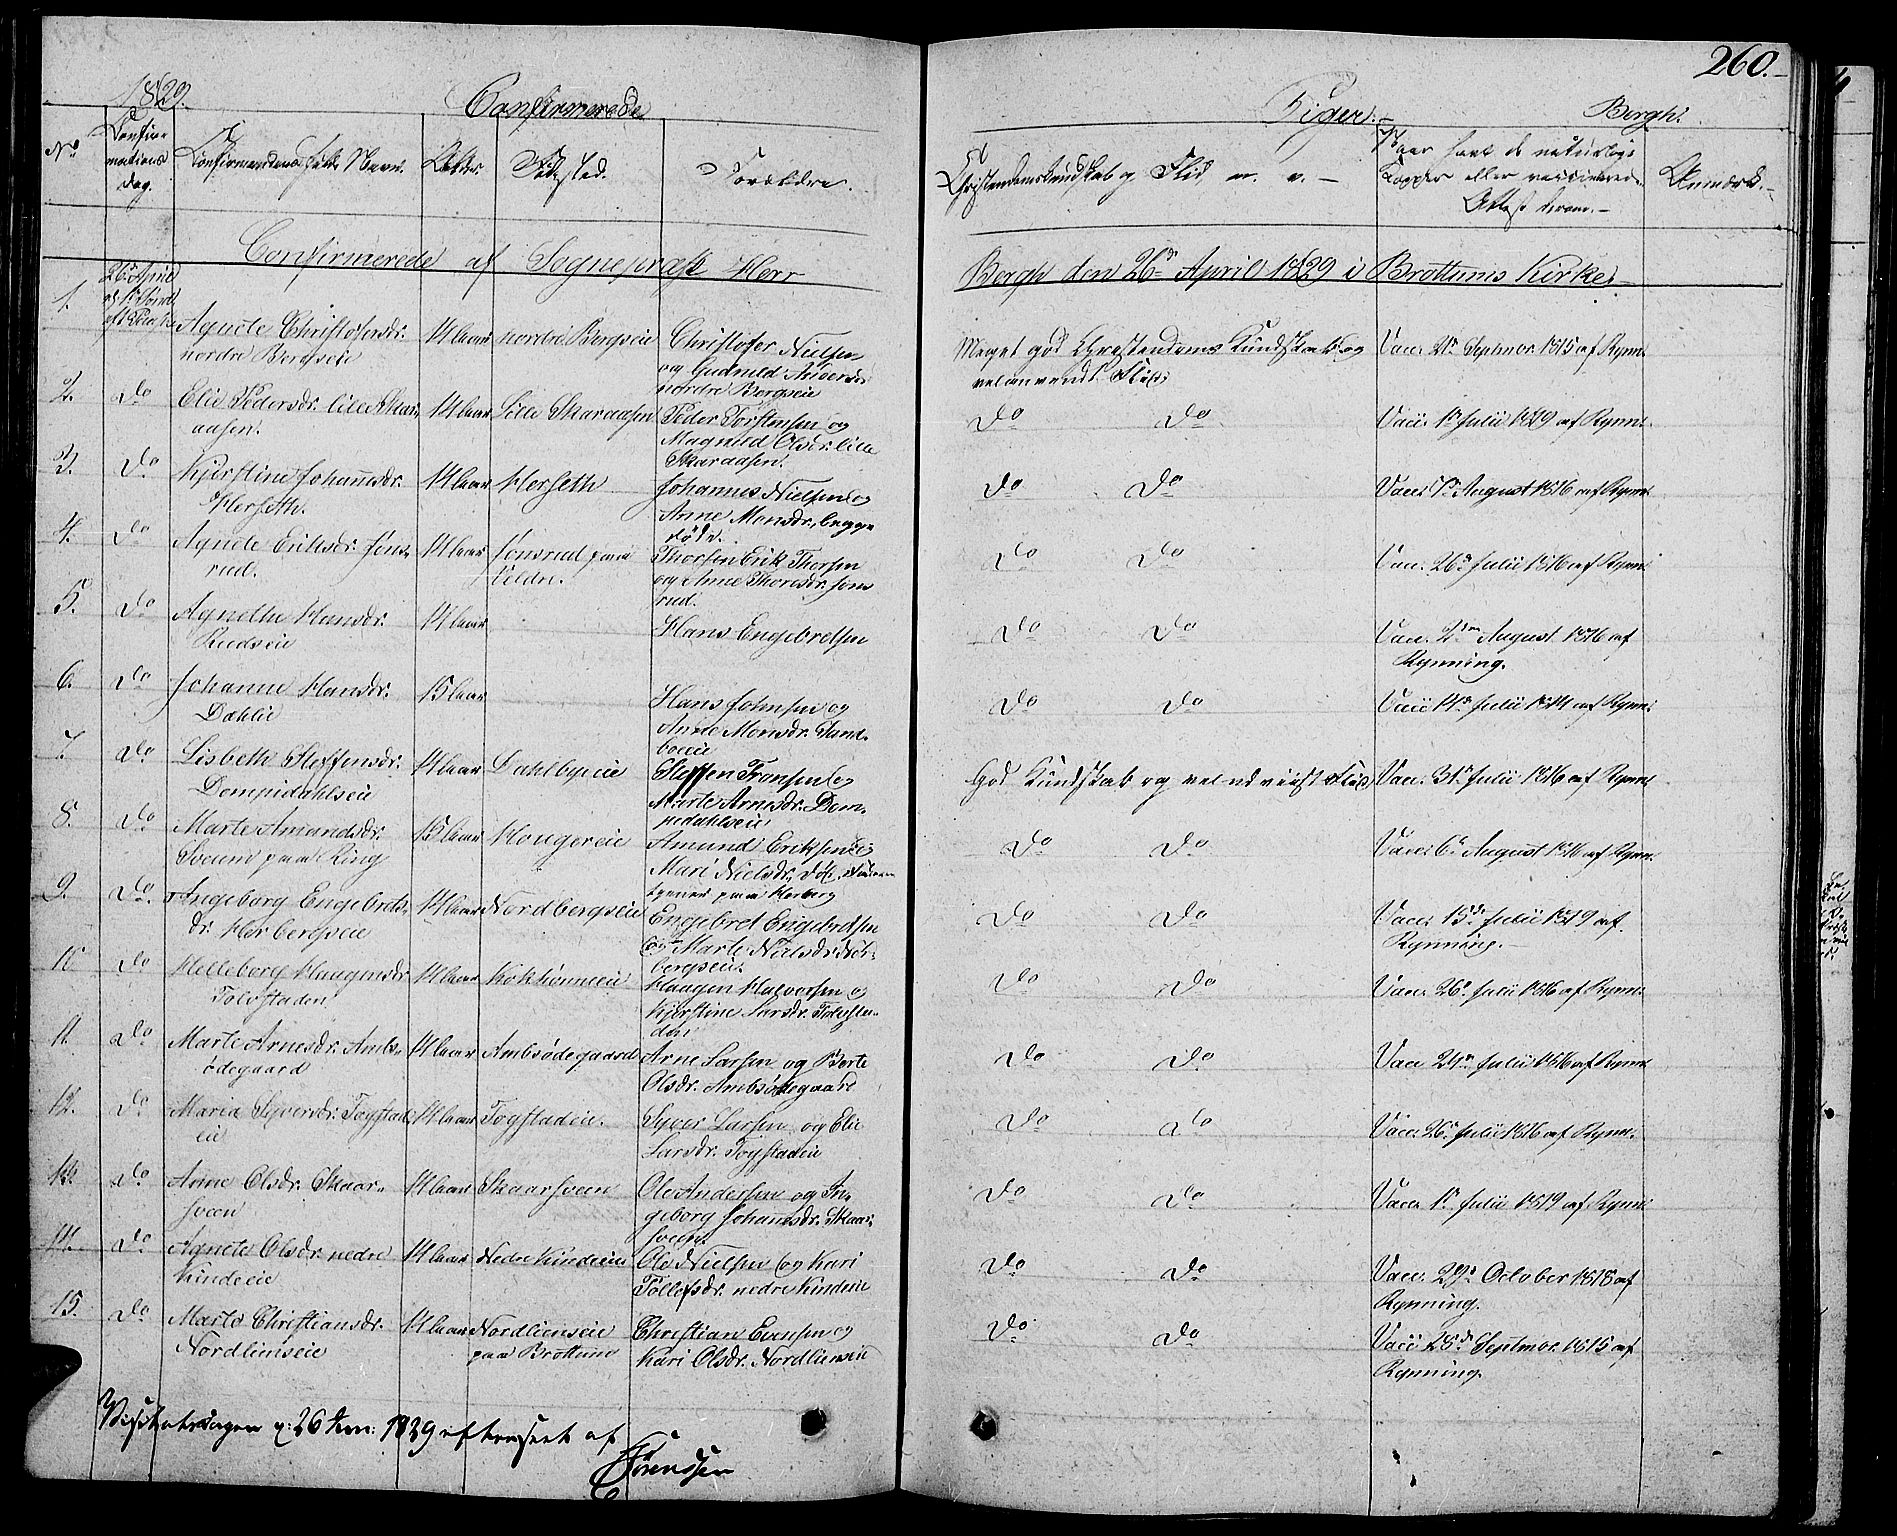 260.
1829.
Confirmerede
Piger.
Bergh.
No
Confir-
mations
dag.
Confirmandens fulde Navn.
Alder.
Fødested.
Forældre.
Christendomskundskab og Flid, m. v.
Naar havt de naturlige
Kopper eller vaccinerede
Attest derom.
Anmærk.
Confirmerede af Sognepræst Herr Bergh den 26de April 1829 i Brøttums Kirke
1.
26de April
Agnete Christofersdr.
nordre Bergseie
14 aar
nordre Bergseie
Christofer Nielsen
og Gudnild Andersdr.
nordre Bergseie
Meget god Christendoms Kundskab og
vel anvendt Flid.
Vacc. 21de Septmbr. 1815 af Rynn.
2.
Do
Elie Pedersdr. lille Skar-
aasen.
14 aar
Lille Skaraasen
Peder Torstensen og
Magnild Olsdr. lille
Skaraasen.
Do Do
Vacc. 1ste Julii 1819 af Rynn.
3.
Do
Kjerstine Johannsdr.
Herseth.
14 aar
Herseth
Johannes Nielsen og
Anne Monsdr., begge
døde.
Do Do
Vacc. 1ste August 1816 af Rynn.
4.
Do
Agnete Eriksdr. Jons-
rud.
14 aar
Jonsrud paa
Veldre.
Erik Thorsen
og Anne Thoresdr. Jons
rud.
Do Do
Vacc. 26de Julii 1816 af Rynn.
5.
Do
Agnethe Hansdr.
Rudseie
14 aar
Hans Engebretsen
Do Do
Vacc. 2den August 1816 af
Rynning.
6.
Do
Johanne Hansdr.
Dæhlie
15 aar
Hans Johnsen og
Anne Monsdr. Sand-
boeie
Do Do
Vacc. 14de Julii 1814 af Rynn.
7.
Do
Lisbeth Steffensdr.
Dompidahlseie
14 aar
Dahlbyeie
Steffen Fransen og
Marte Arnesdr. Dom-
pedahlseie
God Kundskab og vel udviist Flid
Vacc. 31te Julii 1816 af Rynn.
8.
Do
Marte Amundsdr.
Sveum paa Ring
15 aar
Hougereie
Amund Eriksen og
Mari Nielsdr.,
tjener paa Herberg
Do Do
Vacc. 6te August 1816 af Rynn.
9.
Do.
Ingeborg Engebrets-
dr. Horbergseie
14 aar
Nordbergseie
Engebret Engebretsen
og Marte Nielsdr. Nor-
bergseie.
Do Do
Vacc. 15de Julii 1819 af
Rynning.
10
Do
Helleborg Haagensdr
Tolvstaden
14 aar
Haagen Halvorsen og
Kjerstine Larsdr. Tolvsta-
den
Do Do
Vacc. 26de Julii 1816 af Rynn.
11.
Do
Marte Arnesdr. Ambs-
ødegaard
14 aar
Ambsødegaard
Arne Larsen og Berte
Olsdr. Ambsødegaard
Do Do
Vacc. 24de Julii 1816 af Rynn.
12.
Do
Maria Syversdr. Togstad
eie
14 aar
Togstadeie.
Syver Larsen og Elie
Larsdr. Togstadeie
Do Do
Vacc. 26de Julii 1816 af Rynn.
13.
Do
Anne Olsdr. Skaar-
sveen
14 aar
Skaarsveen
Ole Andersen og In-
geborg Johannsdr. Skaar-
sveen.
Do Do
Vacc. 1ste Julii 1819 af Rynn.
14.
Do
Agnete Olsdr. nedre
Kindeeie
14 aar
Nedre Kindeeie
Ole Nielsen og Kari
Tollefsdr. nedre Kindeeie
Do Do
Vacc. 29de October 1818 af
Rynning.
15.
Do
Marte Christiansdr.
Nordlienseie
14 aar
Nordlienseie
paa Brøttum
Christian Evensen og
Kari Olsdr. Nordlienseie
Do Do
Vacc. 28de Septmbr. 1815 af
Rynning.
26 1829 efterseet af
Sørenssen